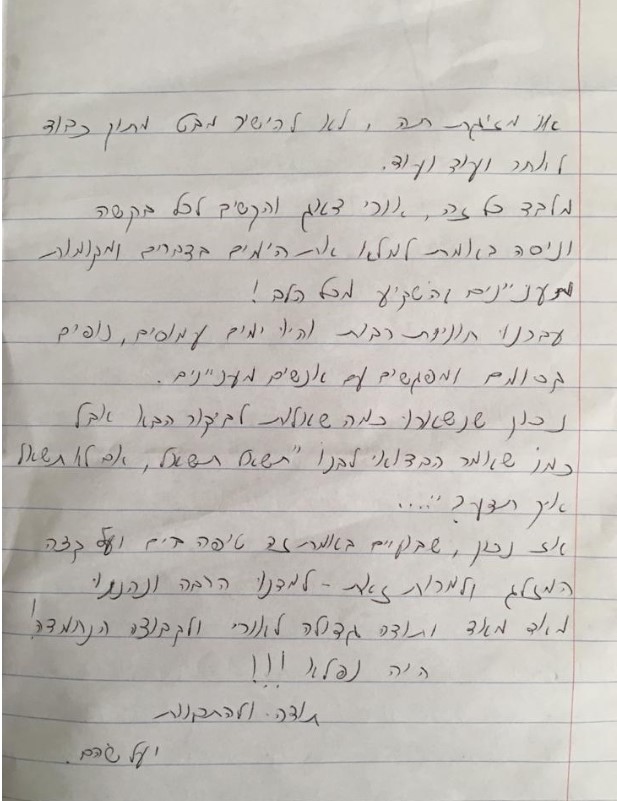 או מזיגת תה, לא להישיר מבט מתוק כבוד
לאחר ועוד ועוד.
מלבד כל זה, אורי דאג והקשיב לכל בקשה
וניסה באמת למלא את הימים בדברים ומקומות
מעניינים והשקיע מכל הלב!
עברנו חוויות רבות והיו ימים עמוסים, נופים
קסומים ומפגשים עם אנשים מעניינים.
נכון שנשארו כמה שאלות לביקור הבא אבל
כמו שאומר הבדואי לבנו "תשאל תשאל, אם לא תשאל
איך תדע?"....
אז נכון, שבועיים באמת זה טיפה בים ועל קצה
המזלג ולמרות זאת - למדנו הרבה ונהננו
מאוד מאוד ותודה גדולה לאורי ולקבוצה הנחמדה!
היה נפלא !!!
תודה ולהתראות
יעל שהם.